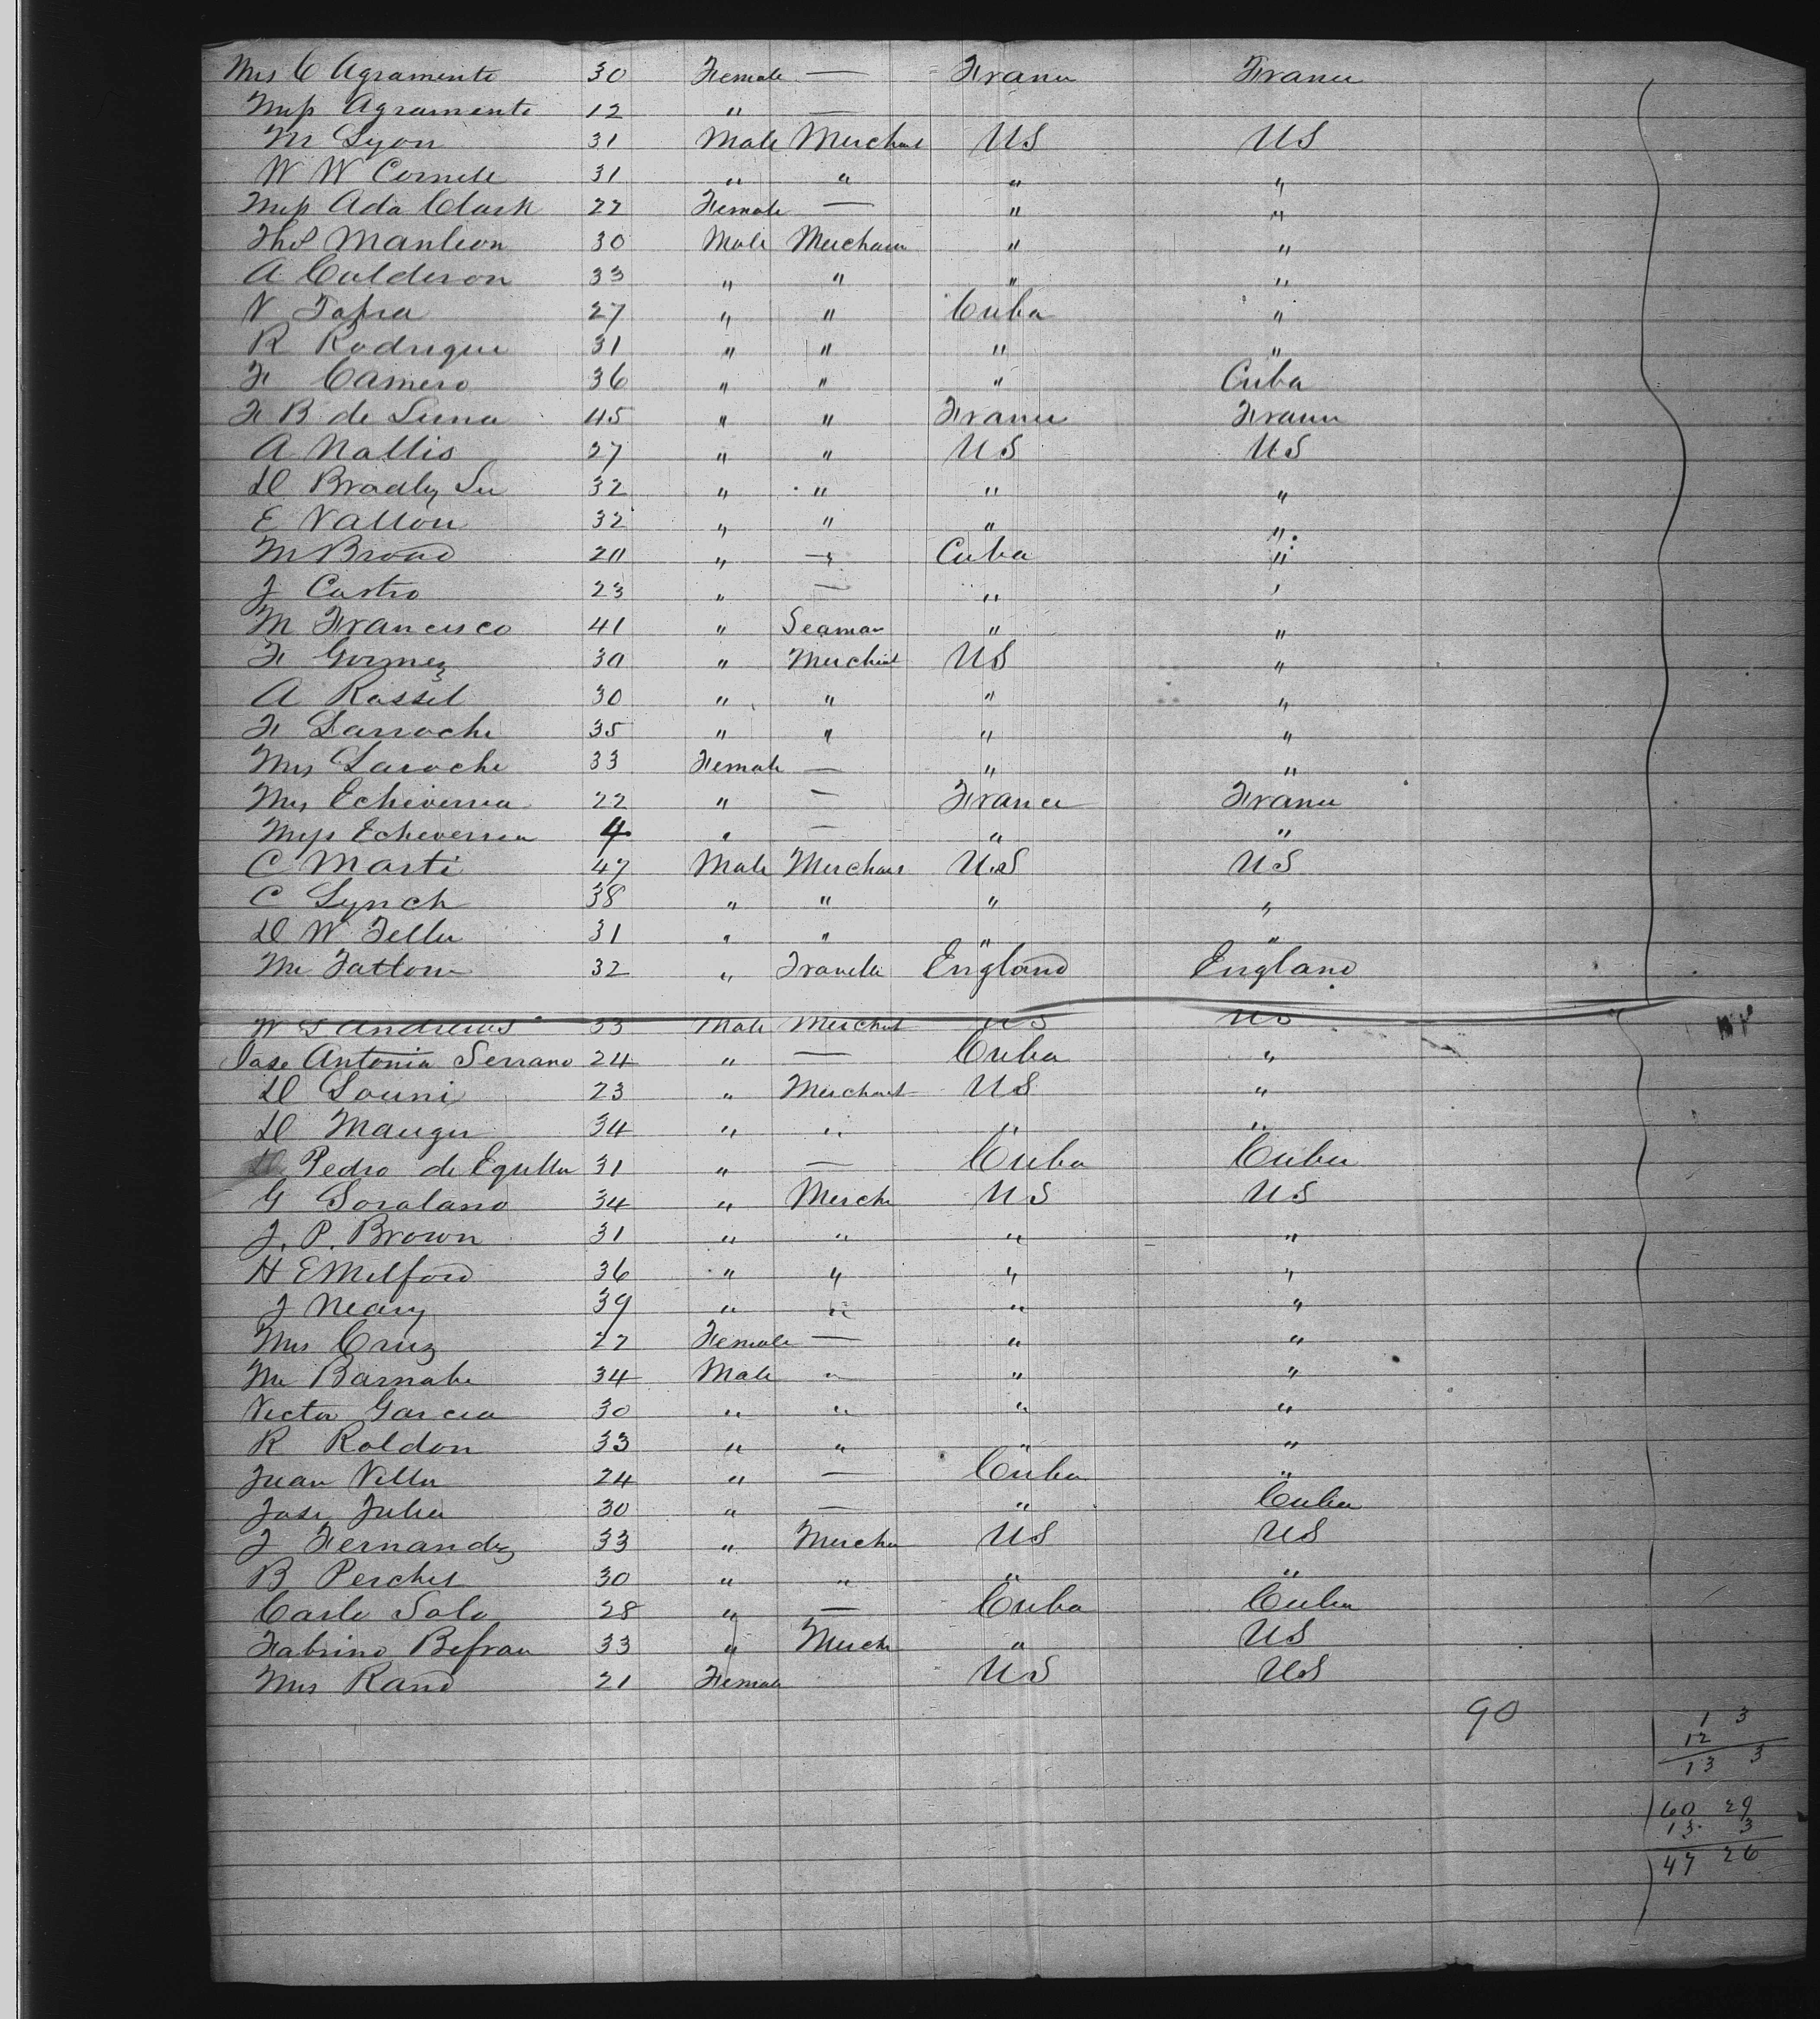 Mrs C Agramente 30 Female — France France
Miss Agramente 12 " —
M Lyon 31 Male Merchant US US
W W Cornell 31 " " " "
Miss Ada Clark 22 Female — " "
Thos Manleon 30 Male Merchan " "
A Calderon 33 " " " "
N Tapia 27 " " Cuba "
R Rodrigue 31 " " " "
F Camero 36 " " " Cuba
F B de Luna 45 " " France France
A Nallis 27 " " US US
D Bradly 32 " " " "
E Vallon 32 " " " "
M Broad 20 " — Cuba "
J Castro 23 " — " "
M Francisco 41 " Seaman " "
F Gormez 30 " Merchant US "
A Rassel 30 " " " "
F Larroche 35 " " " "
Mrs Laroche 33 Female — " "
Mrs Echeverria 22 " — France France
Miss Echeverria 4 " — " "
C Marti 47 Male Merchant US US
C Lynch 38 " " " "
D W Feller 31 " " " "
Mr Tatlow 32 " Traveller England England
W S Andrews 33 Male Merchant US US
Jose Antonia Serrano 24 " — Cuba "
D Louni 23 " Merchant US "
D Mauger 34 " " " "
Pedro de Equilla 31 " — Cuba Cuba
G Soralano 34 " Merch US US
J. P. Brown 31 " " " "
H E Milford 36 " " " "
J Neary 39 " " " "
Mrs Cruz 22 Female — " "
Mr Barnabe 34 Male " " "
Victor Garcia 30 " " " "
R Roldon 33 " " " "
Juan Villa 24 " — Cuba "
Jose Julia 30 " — " Cuba
J Fernandez 33 " Mercha US US
B Perchet 30 " " " "
Carlo Solo 28 " — Cuba Cuba
Fabrino 33 " Merch " US
Mrs Rand 21 Female US US
90
1 3
12
13 3
60 29
13 3
47 26